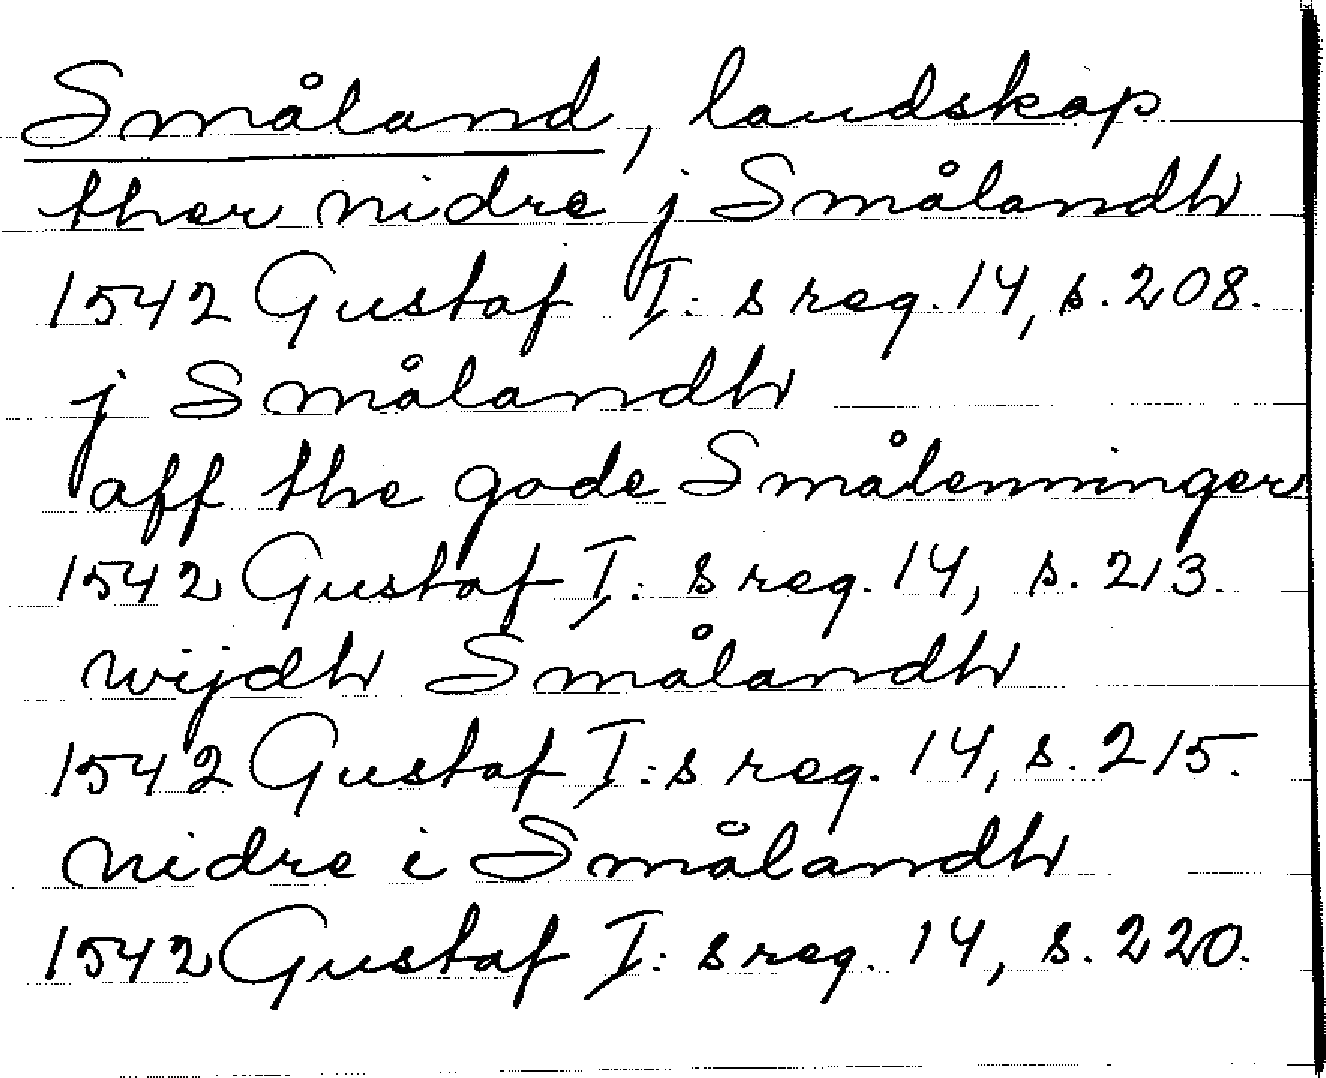 Småland, landskap
ther nidre j Smålandh
1542 Gustaf I:s reg. 14, s. 208.
j Smålandh
aff the gode Smålenninger
1542 Gustaf I:s reg. 14, s. 213.
wijdh Smålandh
1542 Gustaf I:s reg. 14, s. 215.
nidre i Smålandh
1542 Gustaf I:s reg. 14, s. 220.